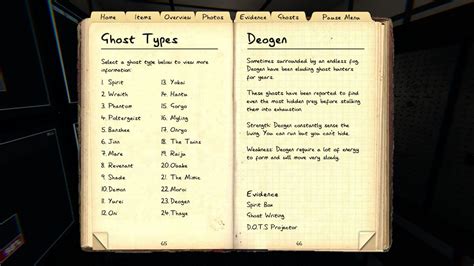 Home Items Overview Photos Evidence Ghosts Pause Menu
Ghost Types
Select a ghost type below to view more
information:
1. Spirit 13. Yokai
2. Wraith 14. Hantu
3. Phantom 15. Goryo
4. Poltergeist 16. Myling
5. Banshee 17. Onryo
6. Jinn 18. The Twins
7. Mare 19. Raiju
8. Revenant 20. Obake
9. Shade 21. The Mimic
10. Demon 22. Moroi
11. Yurei 23. Deogen
12. Oni 24. Thaye
65
Deogen
Sometimes surrounded by an endless fog,
Deogen have been eluding ghost hunters
for years.
These ghosts have been reported to find
even the most hidden prey before stalking
them into exhaustion.
Strength: Deogen constantly sense the
living. You can run but you can't hide.
Weakness: Deogen require a lot of energy
to form and will move very slowly.
Evidence
Spirit Box
Ghost Writing
D.O.T.S Projector
66